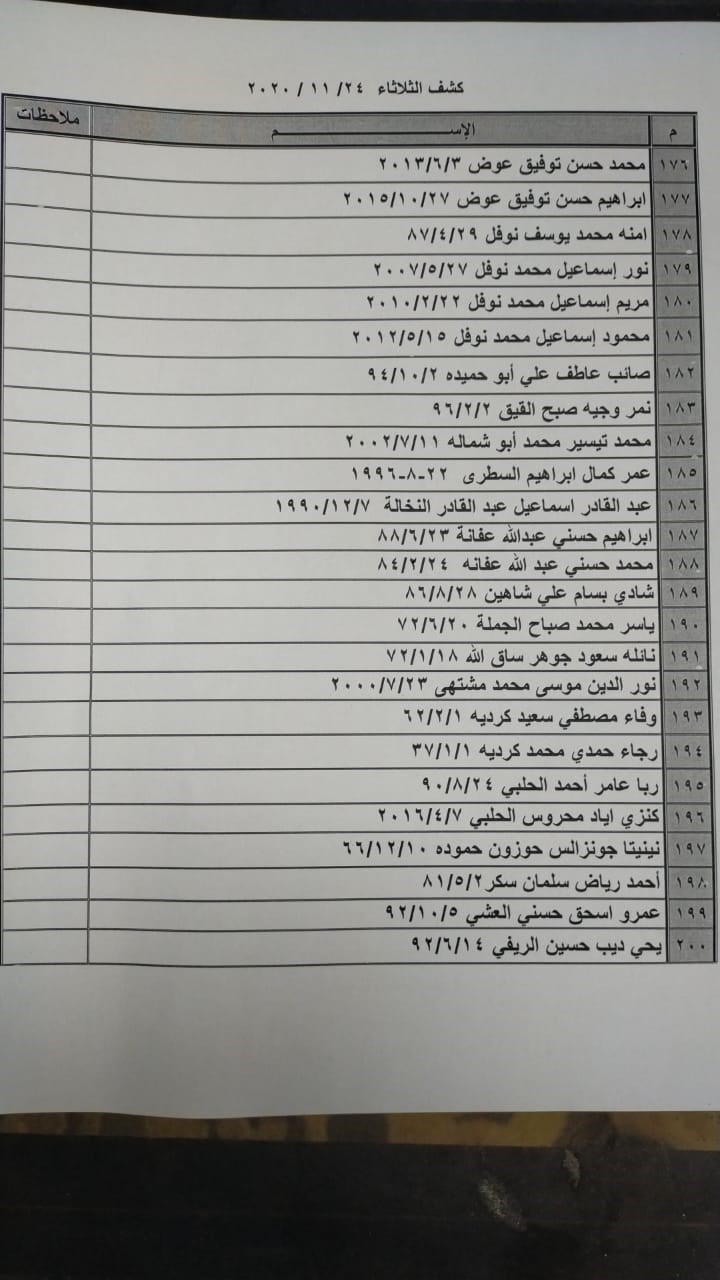 كشف الثلاثاء ٢٤/ ١١ / ٢٠٢٠
م الإســـــــــــــــــــــــم ملاحظات
١٧٦ محمد حسن توفيق عوض ٢٠١٣/٦/٣
١٧٧ ابراهيم حسن توفيق عوض ٢٠١٥/١٠/٢٧
١٧٨ امنه محمد يوسف نوفل ٨٧/٤/٢٩
١٧٩ نور إسماعيل محمد نوفل ٢٠٠٧/٥/٢٧
١٨٠ مريم إسماعيل محمد نوفل ٢٠١٠/٢/٢٢
١٨١ محمود إسماعيل محمد نوفل ٢٠١٢/٥/١٥
١٨٢ صائب عاطف علي أبو حميده ٩٤/١٠/٢
١٨٣ نمر وجيه صبح القيق ٩٦/٢/٢
١٨٤ محمد تيسير محمد أبو شماله ٢٠٠٢/٧/١١
١٨٥ عمر كمال ابراهيم السطرى ٢٢-٨-١٩٩٦
١٨٦ عبد القادر اسماعيل عبد القادر النخالة ١٩٩٠/١٢/٧
١٨٧ ابراهيم حسني عبدالله عفانة ٨٨/٦/٢٣
١٨٨ محمد حسني عبد الله عفانه ٨٤/٢/٢٤
١٨٩ شادي بسام علي شاهين ٨٦/٨/٢٨
١٩٠ ياسر محمد صباح الجملة ٧٢/٦/٢٠
١٩١ نائله سعود جوهر ساق الله ٧٢/١/١٨
١٩٢ نور الدين موسى محمد مشتهى ٢٠٠٠/٧/٢٣
١٩٣ وفاء مصطفي سعيد كرديه ٦٢/٢/١
١٩٤ رجاء حمدي محمد كرديه ٣٧/١/١
١٩٥ ربا عامر أحمد الحلبي ٩٠/٨/٢٤
١٩٦ كنزي اياد محروس الحلبي ٢٠١٦/٤/٧
١٩٧ نينيتا جونزالس حوزون حموده ٦٦/١٢/١٠
١٩٨ أحمد رياض سلمان سكر ٨١/٥/٢
١٩٩ عمرو اسحق حسني العشي ٩٢/١٠/٥
٢٠٠ يحي ديب حسين الريفي ٩٢/٦/١٤